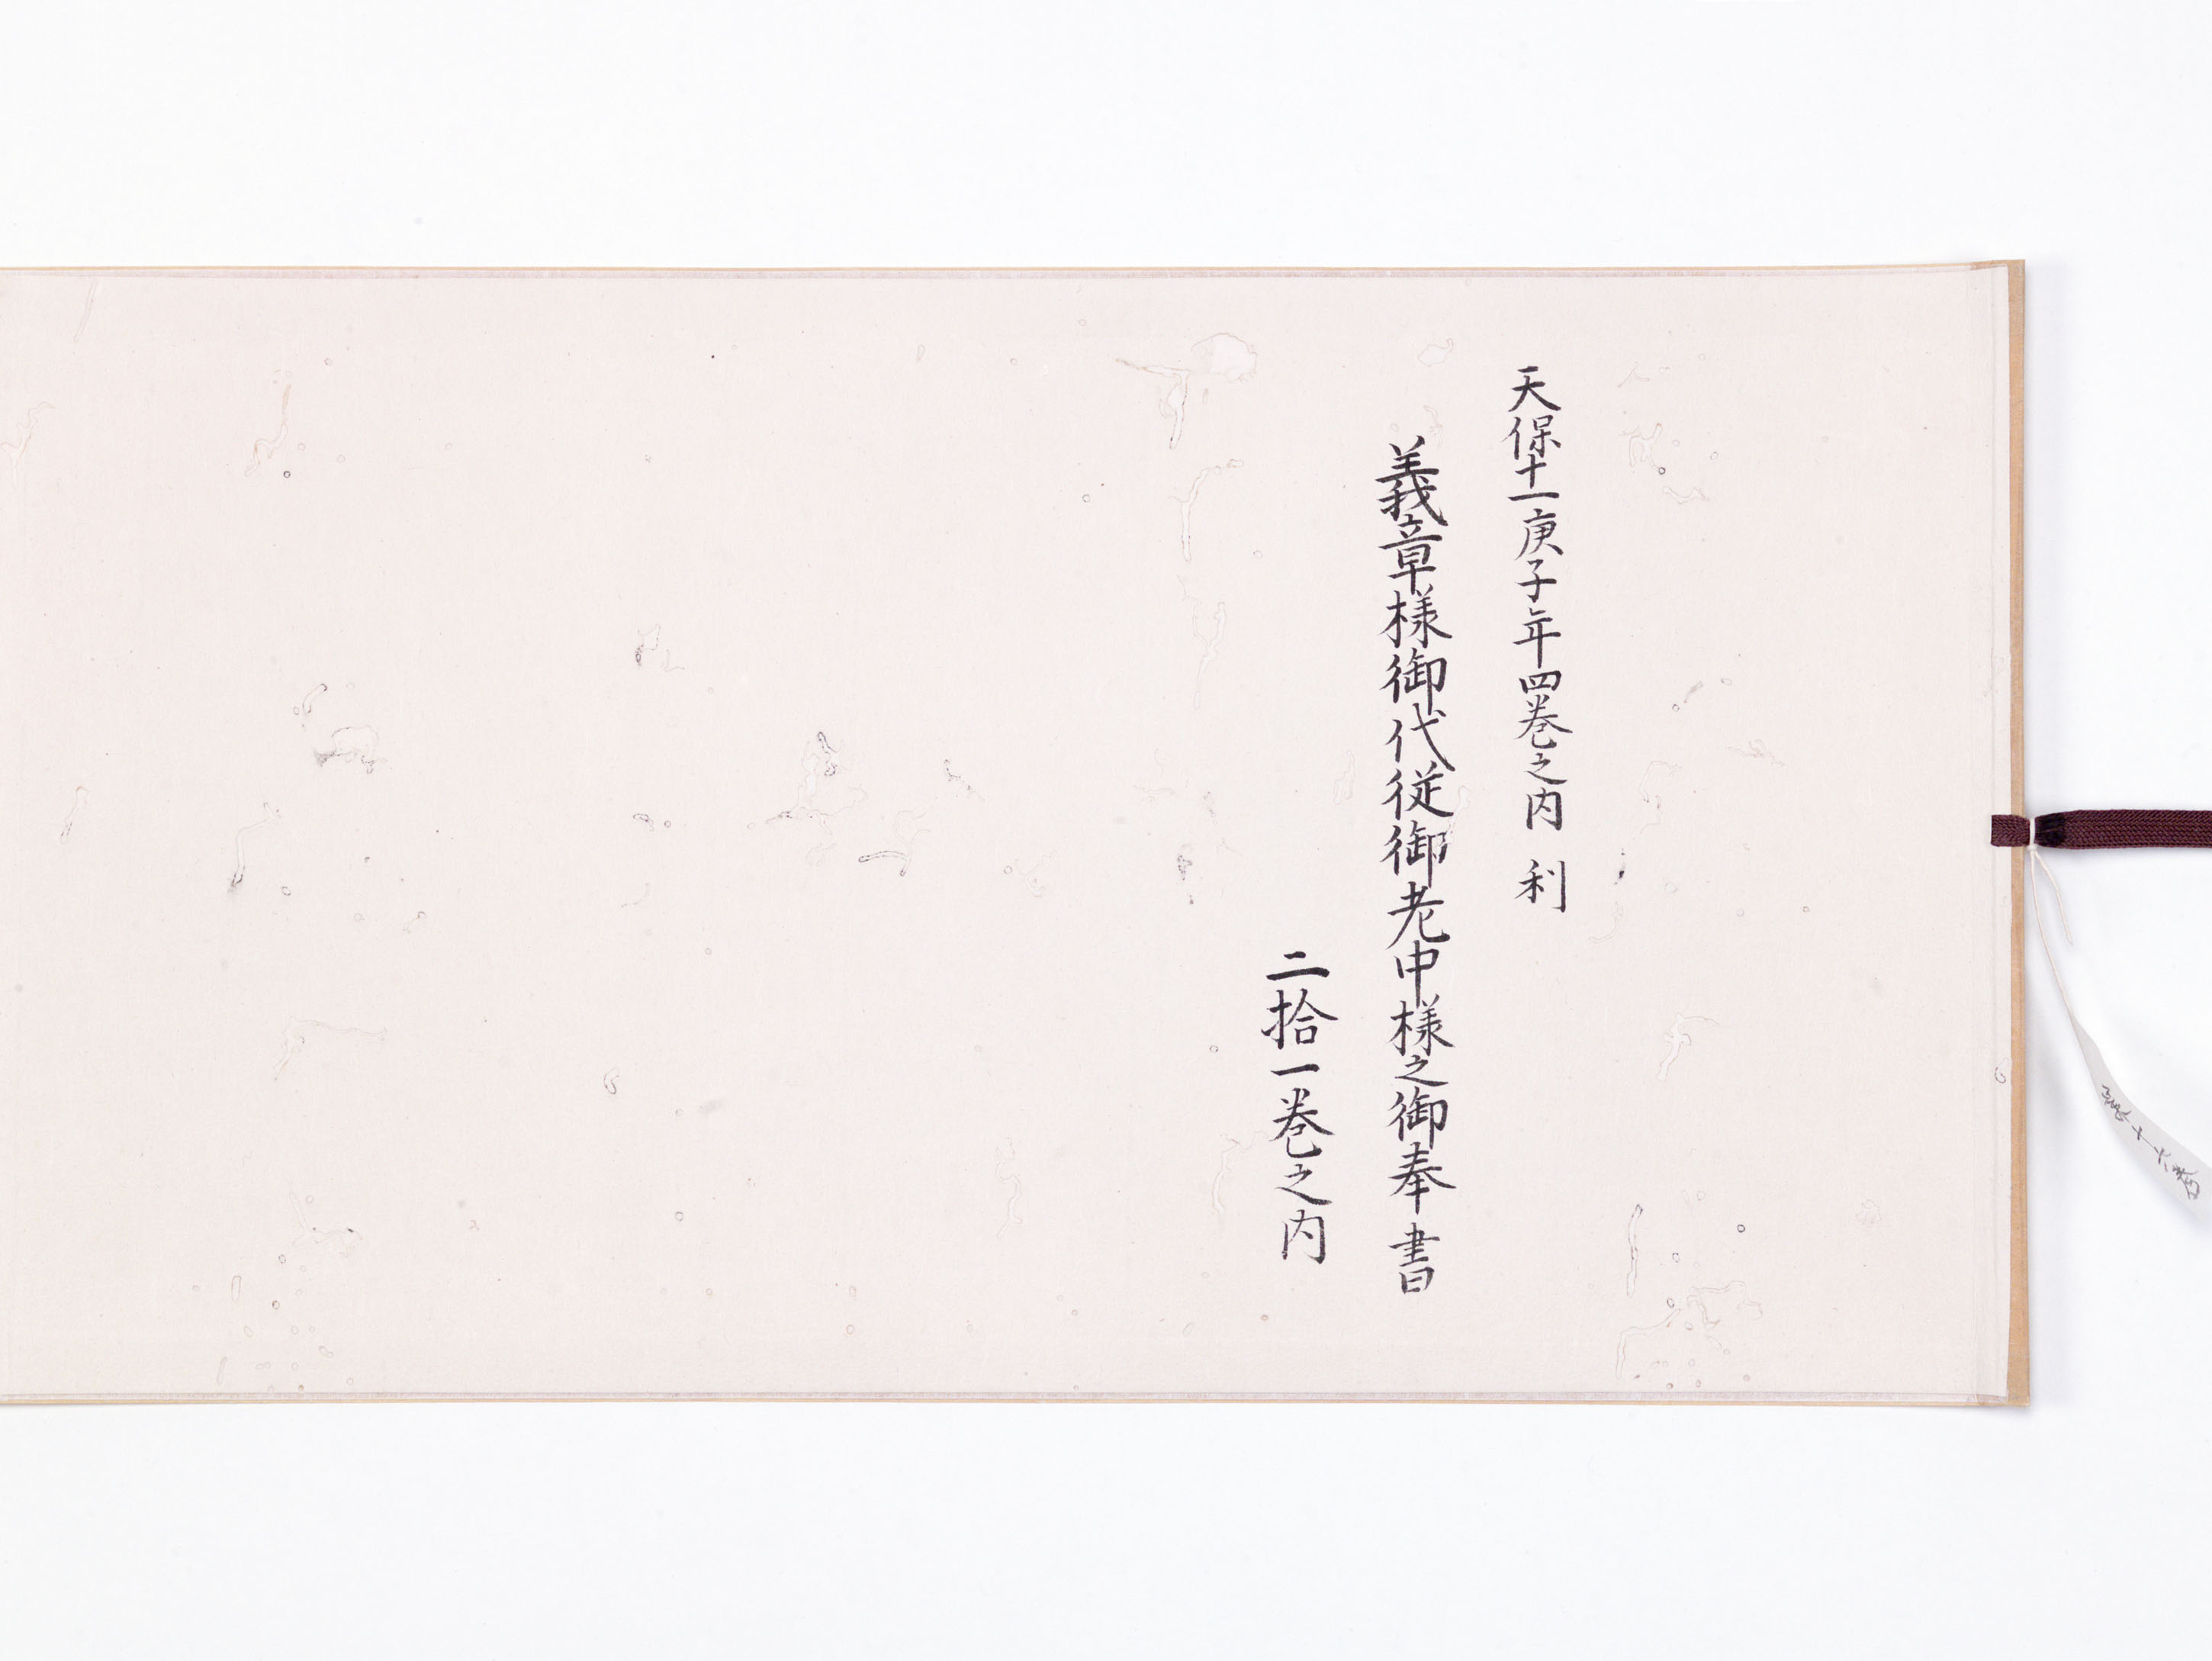 天保十一庚子年四巻之内　利
義章様御代従御老中様之御奉書
二拾一巻之内